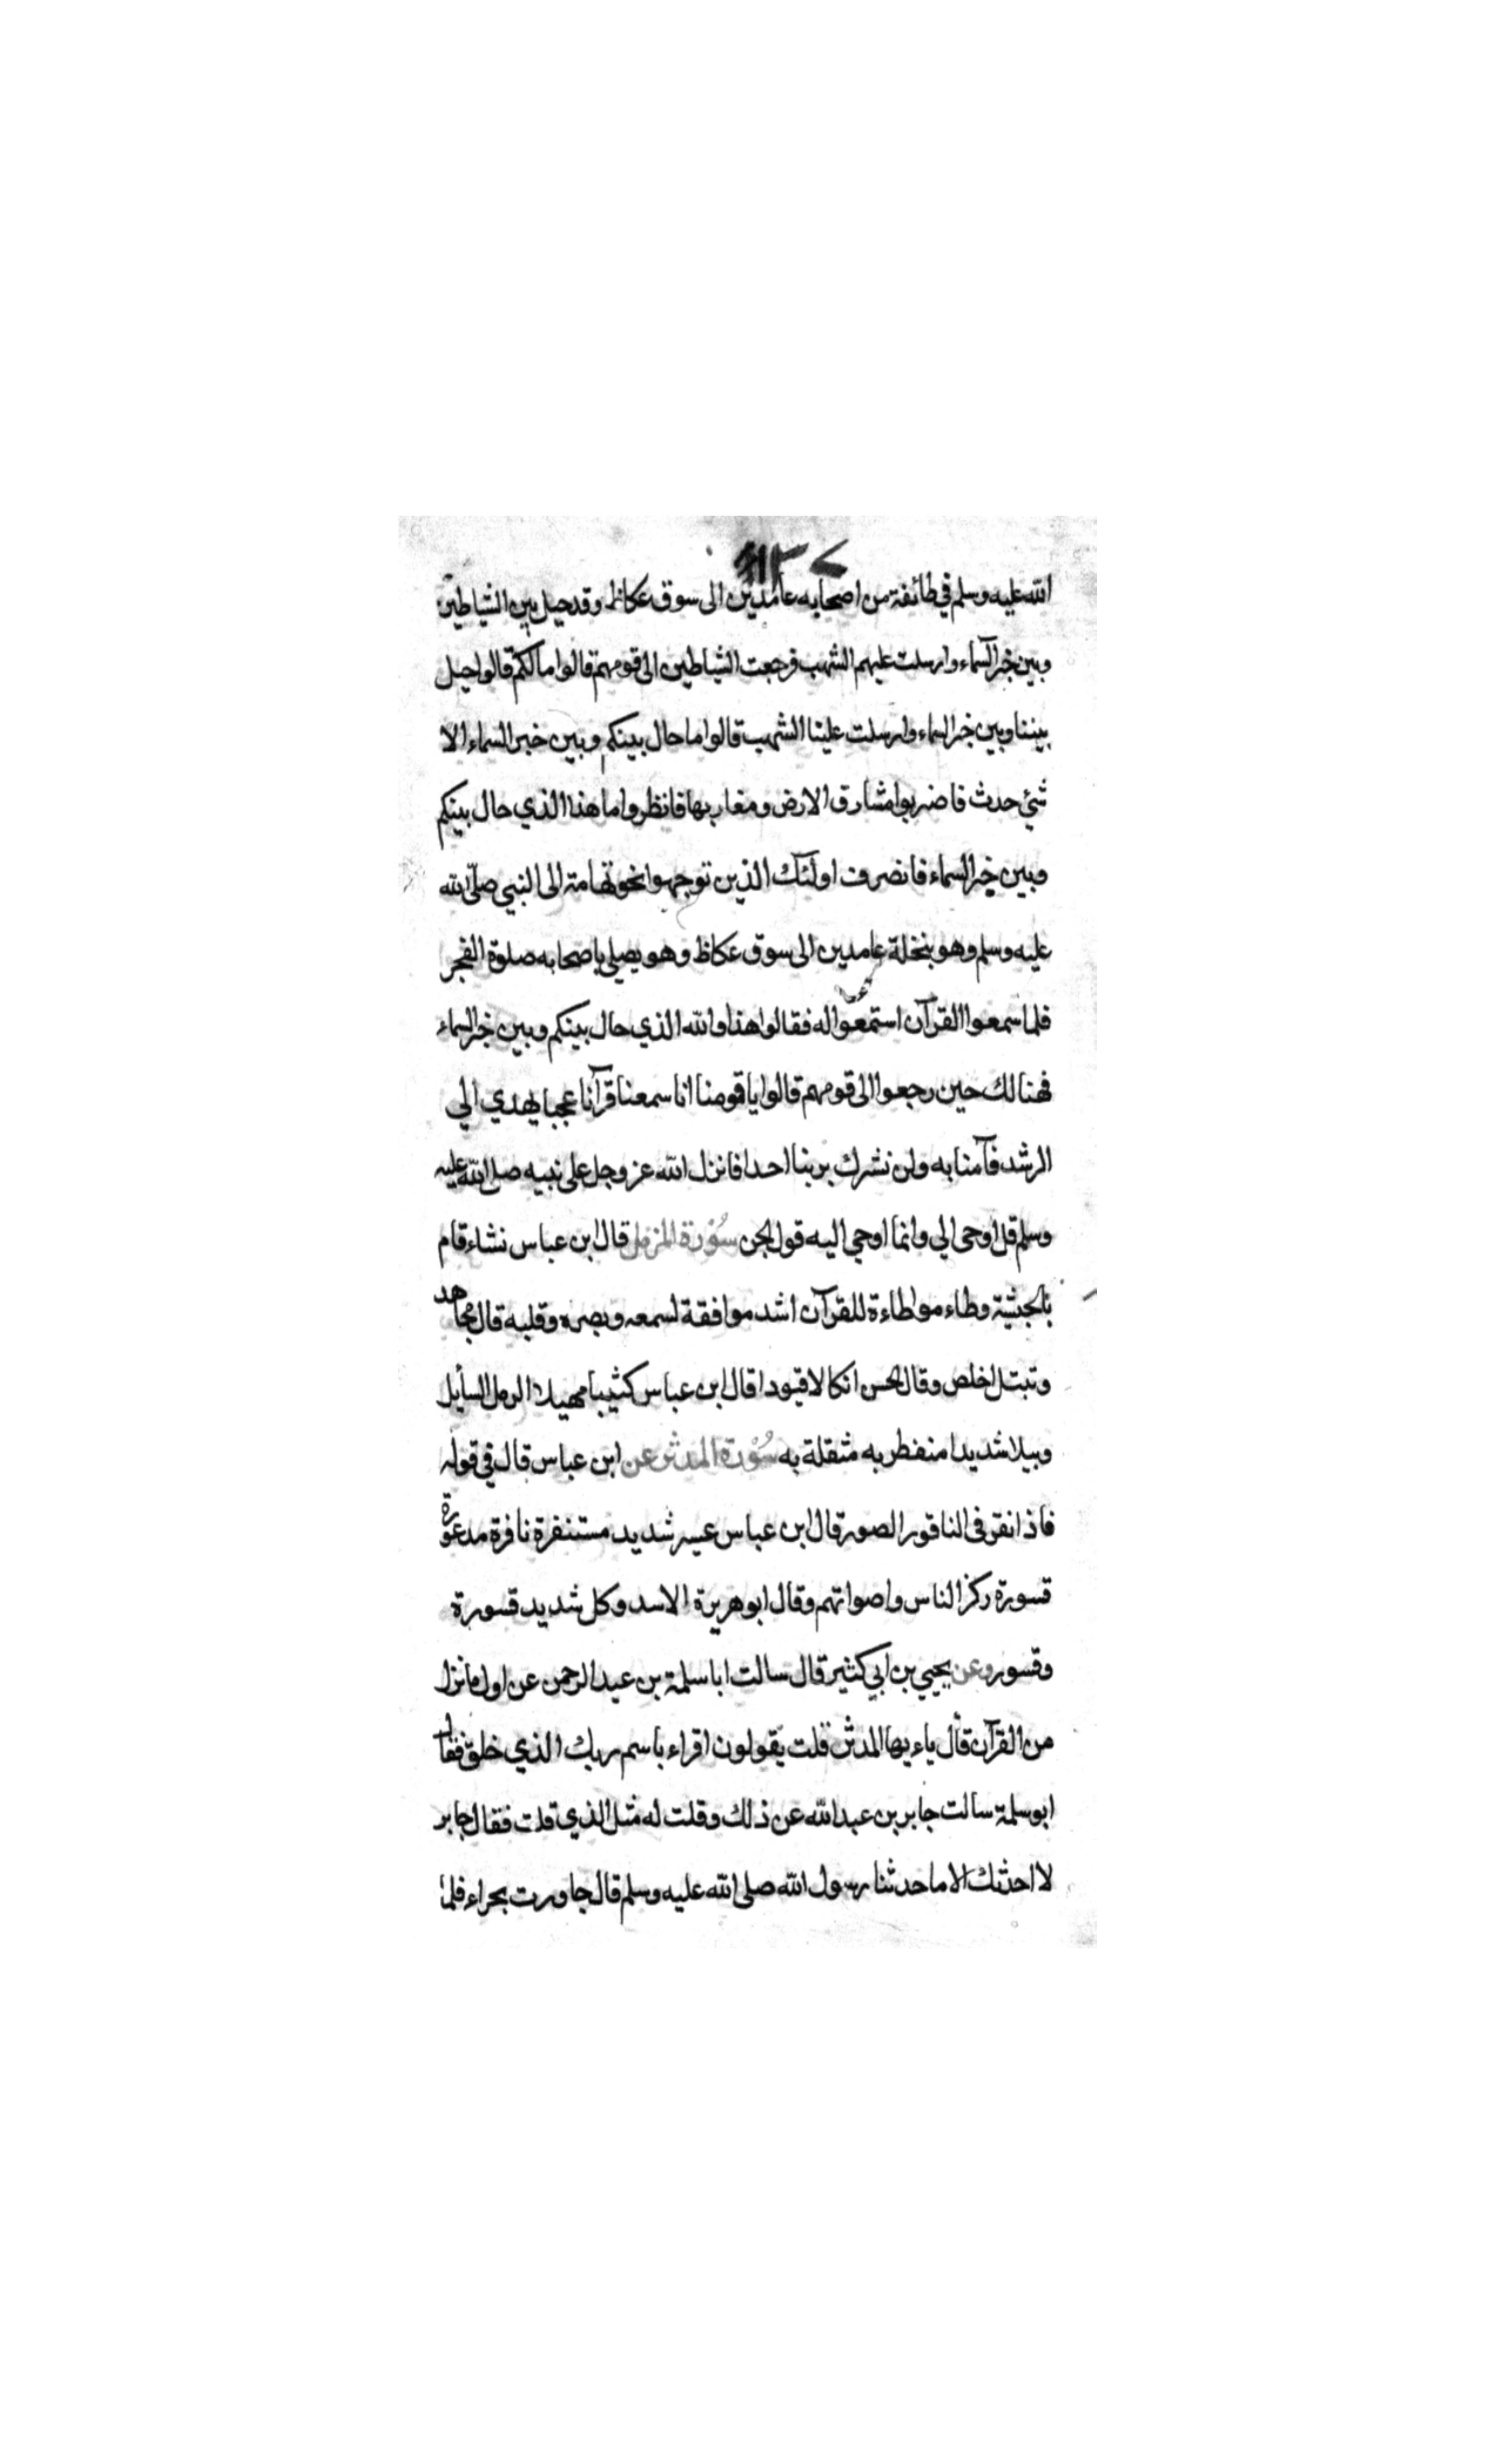 الله عليه وسلم في طائفة من اصحابه عامدين الى سوق عكاظ وقد حيل بين الشياطين
وبين خبر السماء وارسلت عليهم الشهب فرجعت الشياطين الى قومهم قالوا مالكم قالوا حيل
بيننا وبين خبر السماء وارسلت علينا الشهب قالوا ما حال بينكم وبين خبر السماء الا
شئ حدث فاضربوا مشارق الارض ومغاربها فانظروا ما هذا الذي حال بينكم
وبين خبر السماء فانصرف اولئك الذين توجهوا نحو تهامة الى النبي صلى الله
عليه وسلم وهو بنخلة عامدين الى سوق عكاظ وهو يصلي باصحابه صلوة الفجر
فلما سمعوا القرآن استمعوا له فقالوا هذا والله الذي حال بينكم وبين خبر السماء
فهنالك حين رجعوا الى قومهم قالوا يا قومنا انا سمعنا قرآنا عجبا يهدي الي
الرشد فآمنا به ولن نشرك بربنا احدا فانزل الله عز وجل على نبيه صلى الله عليه
وسلم قل اوحى الي وانما اوحي اليه قول الجن سورة المزمل قال ابن عباس نشاء قام
بالحبشية وطاء مواطاءة للقرآن اشد موافقة لسمعه وبصره وقلبه قال مجاهد
وتبتل اخلص وقال الحسن انكالا قيودا قال ابن عباس كثيبا مهيلا الرمل السايل
وبيلا شديدا منفطر به مثقلة به سورة المدثر عن ابن عباس قال في قوله
فاذا نقر في الناقور الصور قال ابن عباس عسير شديد مستنفرة نافرة مدعورة
قسورة ركز الناس واصواتهم وقال ابو هريرة الاسد وكل شديد قسورة
وقسور وعن يحيي بن ابي كثير قال سالت ابا سلمة بن عبد الرحمن عن اول ما نزل
من القرآن قال ياءيها المدثر قلت يقولون اقراء باسم ربك الذي خلق فقال
ابو سلمة سالت جابر بن عبد الله عن ذلك وقلت له مثل الذي قلت فقال جابر
لا احدثك الا ما حدثنا رسول الله صلى الله عليه وسلم قال جاورت بحراء فلما